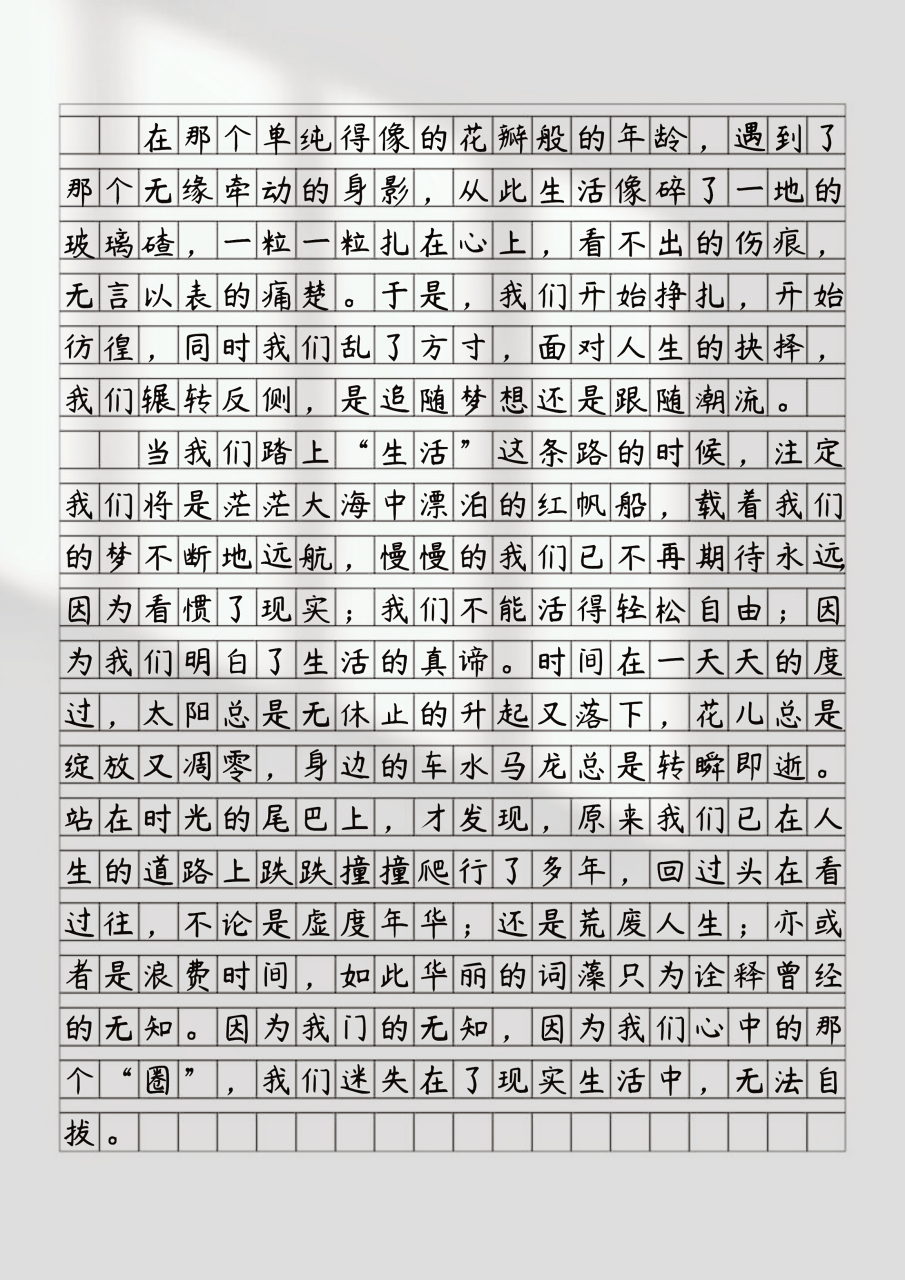 在那个单纯得像的花瓣般的年龄，遇到了
那个无缘牵动的身影，从此生活像碎了一地的
玻璃碴，一粒一粒扎在心上，看不出的伤痕，
无言以表的痛楚。于是，我们开始挣扎，开始
彷徨，同时我们乱了方寸，面对人生的抉择，
我们辗转反侧，是追随梦想还是跟随潮流。
当我们踏上“生活”这条路的时候，注定
我们将是茫茫大海中漂泊的红帆船，载着我们
的梦不断地远航，慢慢的我们已不再期待永远，
因为看惯了现实；我们不能活得轻松自由；因
为我们明白了生活的真谛。时间在一天天的度
过，太阳总是无休止的升起又落下，花儿总是
绽放又凋零，身边的车水马龙总是转瞬即逝。
站在时光的尾巴上，才发现，原来我们已在人
生的道路上跌跌撞撞爬行了多年，回过头在看
过往，不论是虚度年华；还是荒废人生；亦或
者是浪费时间，如此华丽的词藻只为诠释曾经
的无知。因为我门的无知，因为我们心中的那
个“圈”，我们迷失在了现实生活中，无法自
拔。